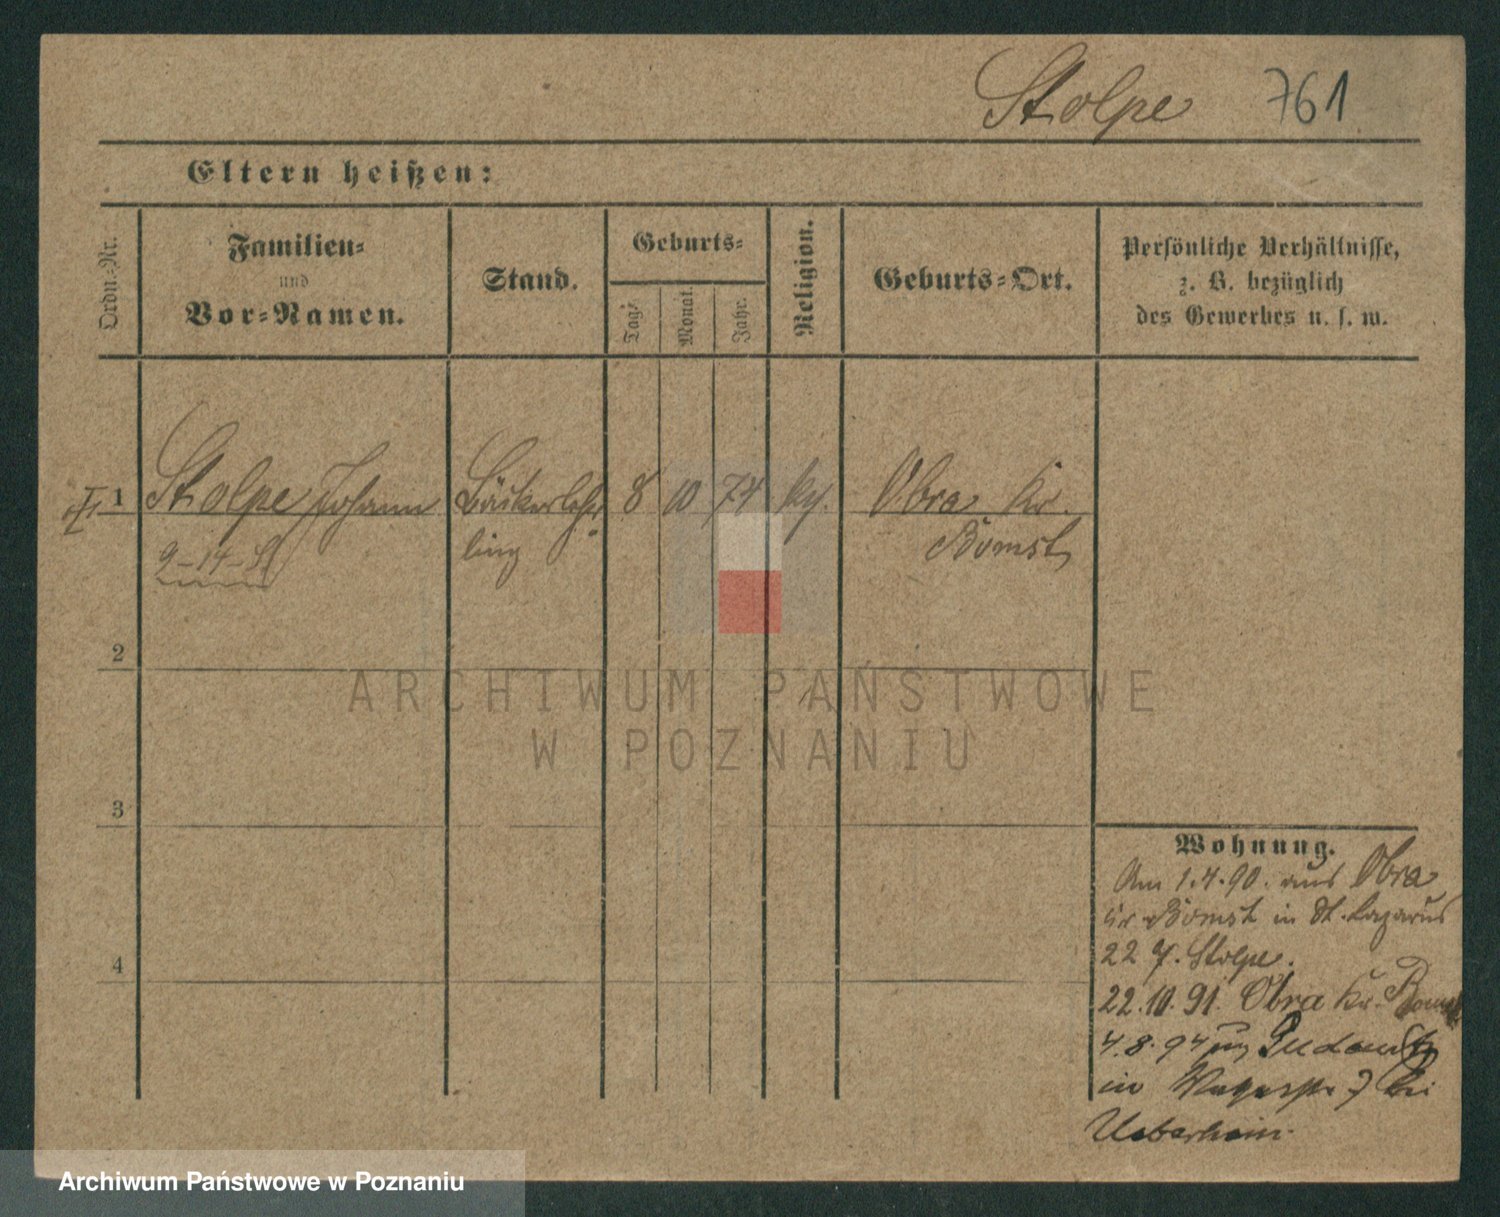 Stolpe 761
Eltern heißen:
Ordn.-Nr.
Familien-
und
Vor-Namen.
Stand.
Geburts-
Tag.
Monat.
Jahr.
Religion.
Geburts-Ort.
Persönliche Verhältnisse,
z. B. bezüglich
des Gewerbes u. s. w.
1 Stolpe Johann Bäckerlehr 8 10 74 Obra Kr.
9-14- ling Bomst
2
ARCHIWUM PAŃSTWOWE
W POZNANIU
3
Wohnung.
Am 1.4.90. aus Obra
Kr Bomst in St. Lazarus
22 Stolpe.
4
22.10.91. Obra Kr. Bomst
4.8.94
in 7 bei
Archiwum Państwowe w Poznaniu